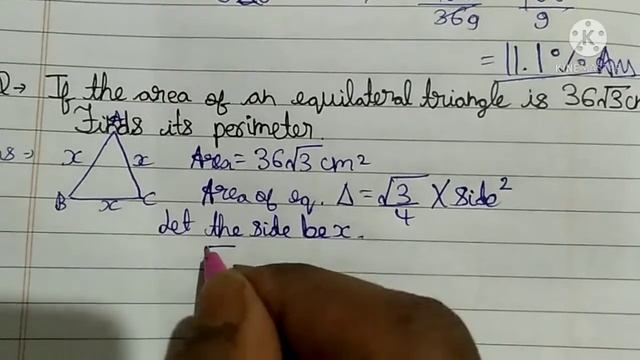 36g 9
= 11.1% Ans
Q→ If the area of an equilateral triangle is 36√3 cm
Finds its perimeter.
Ans → x x Area = 36√3 cm²
B x C Area of eq. Δ = √3/4 × side²
Let the side be x.